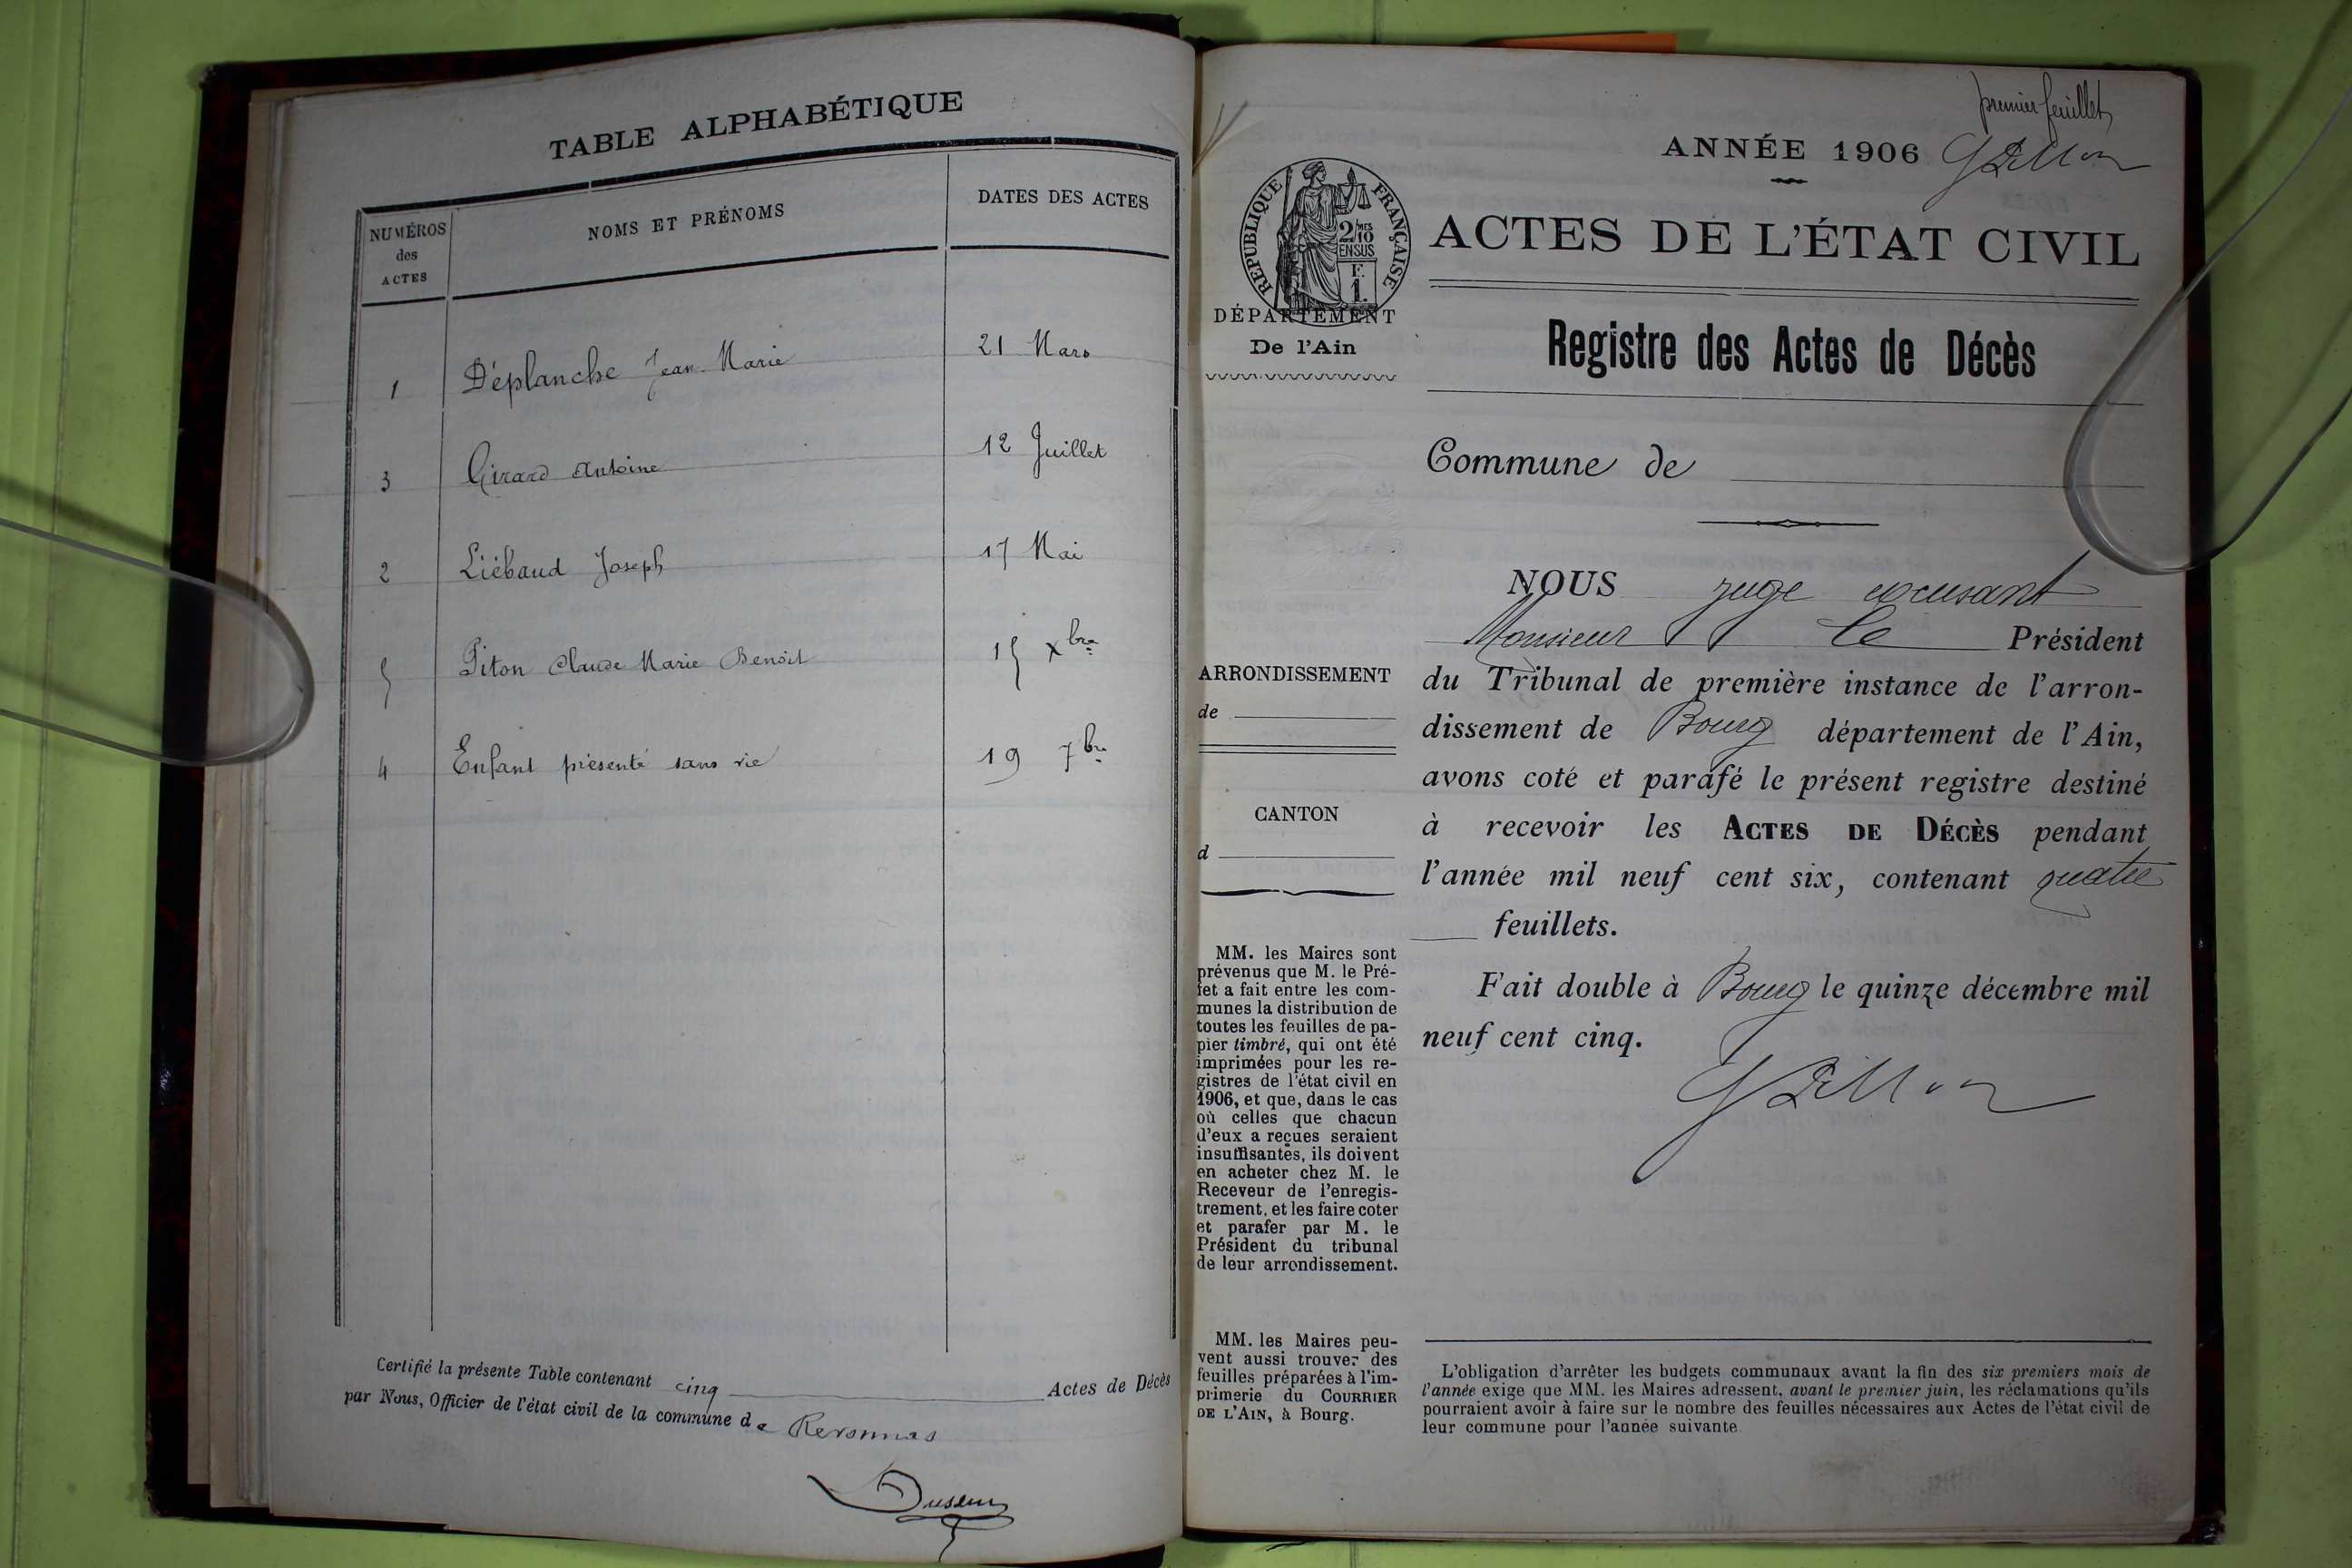 TABLE ALPHABÉTIQUE
NUMÉROS des ACTES
NOMS ET PRÉNOMS
DATES DES ACTES
1 Déplanche Jean-Marie 21 Mars
3 Girard Antoine 12 Juillet
2 Liébaud Joseph 17 Mai
5 Piton Claude Marie Benoit 15 Xbre
4 Enfant présenté sans vie 19 7bre
Certifié la présente Table contenant cinq Actes de Décès
par Nous, Officier de l'état civil de la commune de Revonnas
premier feuillet
ANNÉE 1906
RÉPUBLIQUE FRANÇAISE
2/10MES
EN SUS
F.
1.
DÉPARTEMENT
De l'Ain
ACTES DE L'ÉTAT CIVIL
Registre des Actes de Décès
Commune de
NOUS juge excusant
Monsieur le Président
ARRONDISSEMENT
de
du Tribunal de première instance de l'arron-
dissement de Bourg département de l'Ain,
avons coté et parafé le présent registre destiné
CANTON
d
à recevoir les ACTES DE DÉCÈS pendant
l'année mil neuf cent six, contenant quatre
feuillets.
Fait double à Bourg le quinze décembre mil
neuf cent cinq.
MM. les Maires sont
prévenus que M. le Pré-
fet a fait entre les com-
munes la distribution de
toutes les feuilles de pa-
pier timbré, qui ont été
imprimées pour les re-
gistres de l'état civil en
1906, et que, dans le cas
où celles que chacun
d'eux a reçues seraient
insuffisantes, ils doivent
en acheter chez M. le
Receveur de l'enregis-
trement, et les faire coter
et parafer par M. le
Président du tribunal
de leur arrondissement.
MM. les Maires peu-
vent aussi trouver des
feuilles préparées à l'im-
primerie du COURRIER
DE L'AIN, à Bourg.
L'obligation d'arrêter les budgets communaux avant la fin des six premiers mois de
l'année exige que MM. les Maires adressent, avant le premier juin, les réclamations qu'ils
pourraient avoir à faire sur le nombre des feuilles nécessaires aux Actes de l'état civil de
leur commune pour l'année suivante